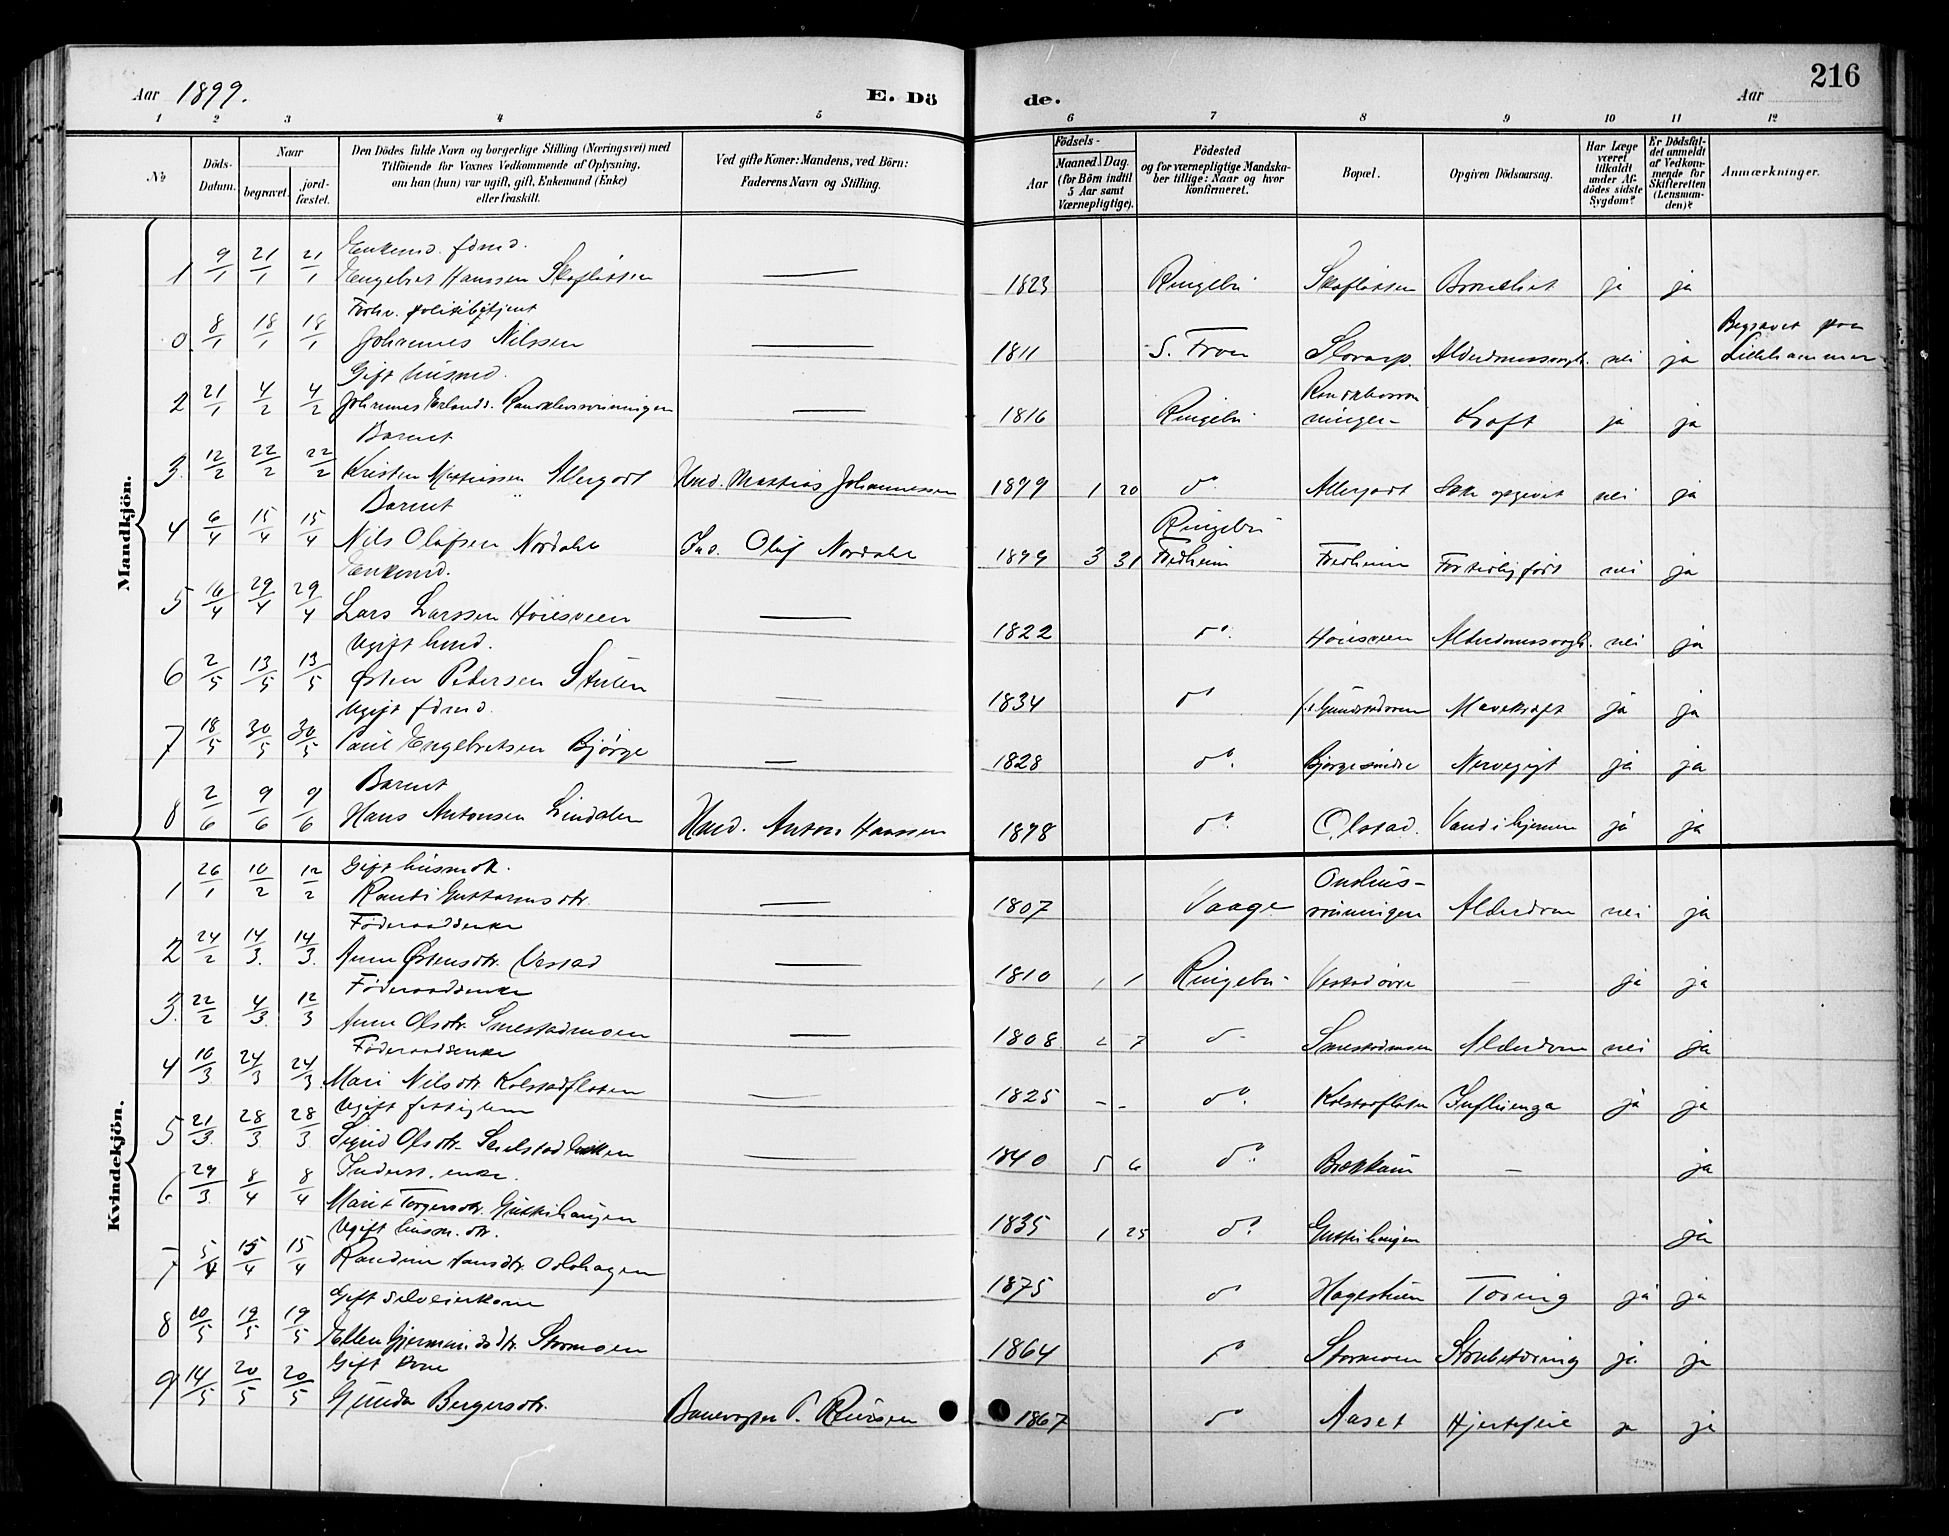 Aar 1899.
E. Dö
de.
Aar
216
1 2 3 4 5 6 7 8 9 10 11 12
№
Döds-Datum.
Naar
begravet.
jord-fæstet.
Den Dödes fulde Navn og borgerlige Stilling (Næringsvei) med
Tilföiende for Voxnes Vedkommende af Oplysning,
om han (hun) var ugift, gift, Enkemand (Enke)
eller fraskilt.
Ved gifte Koner: Mandens, ved Börn:
Faderens Navn og Stilling.
Födsels-
Aar
Maaned. Dag.
(for Börn indtil
5 Aar samt
Værnepligtige).
Födested
og for værnepligtige Mandska-
ber tillige: Naar og hvor
konfirmeret.
Bopæl.
Opgiven Dödsaarsag.
Har Læge
været
tilkaldt
under Af-
dödes sidste
Sygdom?
Er Dödsfal-
det anmeldt
af Vedkom-
mende for
Skifteretten
(Lensman-
den)?
Anmærkninger.
Mandkjön.
Enkemd. fdmd.
1 9/1 21/1 21/1 Engebret Hanssen Skaflotten — 1823 Ringebu Skaflotten Bronchit ja ja
Forhv. politibetjent
0. 8/1 18/1 18/1 Johannes Nilssen — 1811 S. Fron Storarp. Alderdomssvagh. nei ja Begravet paa Lillehammer
Gift husmd.
2 21/1 4/2 4/2 Johannes Erlands. Randklevrønningen — 1816 Ringebu Kræft ja ja
Barnet
3. 12/2 22/2 22/2 Kristen Mathiassen Allergodt Husd. Mattias Johannessen 1899 1 20 do Allergodt Ikke opgivet nei ja
Barnet
4 6/4 15/4 15/4 Nils Olafsen Nordahl Ins. Olaf Nordahl 1899 3 31 Ringebu Fredheim Fredheim For tidlig født nei ja
Enkemd.
5 16/4 29/4 29/4 Lars Larssen Høiesveen — 1822 do. Høiesveen Alderdomssvagh. nei ja
Ugift
6 2/5 13/5 13/5 Østen Pedersen Stulen — 1834 do Mavekræft ja ja
Ugift fdmd.
7 18/5 30/5 30/5 Paul Engebretsen Bjørge — 1828 do. Bjørge søndre Nervegigt ja ja
Barnet
8 2/6 9/6 9/6 Hans Antonsen Lindalen Husd. Anton Hanssen 1898 do. Olstad. Vand i hjernen ja ja
Kvindekjön.
Gift
1 26/1 10/2 12/2 Randi Guttormsdtr. — 1807 Vaage rønningen Alderdom nei ja
Føderaadsenke
2 24/2 14/3. 14/3. Anne Østensdtr. Vestad — 1810 1 1 Ringebu Vestad øvre — ja ja
Føderaadsenke
3. 22/2 4/3. 12/3 Anne Olsdtr. Smestadmoen — 1808 2 7 do Smestadmoen Alderdom nei ja
Føderaadsenke
4 10/3. 24/3 24/3 Mari Nilsdtr. Kolstadfloten — 1825 - - do. Kolstadfloten Influenza ja ja
Ugift fattiglem
5 21/3. 28/3 28/3. Sigrid Olsdtr. — 1840 5 6 do. — ja
Inderst. enke.
6 29/3. 8/4 8/4 Marit Torgersdtr. Guttuhaugen 1835 1 25 do. Guttuhaugen ja
Ugift husm. dtr.
7 5/4 15/4 15/4 Randine Hansdtr. 1875 do Tæring ja ja
Gift selveierkone
8 10/5 19/5 19/5 Ellen Stormoen 1864 do Stormoen Strubetæring ja ja
Gift kone
9 14/5 20/5 20/5 Gunda Bergersdtr. Banevogter 1867 do Aaset Hjertefeil ja ja